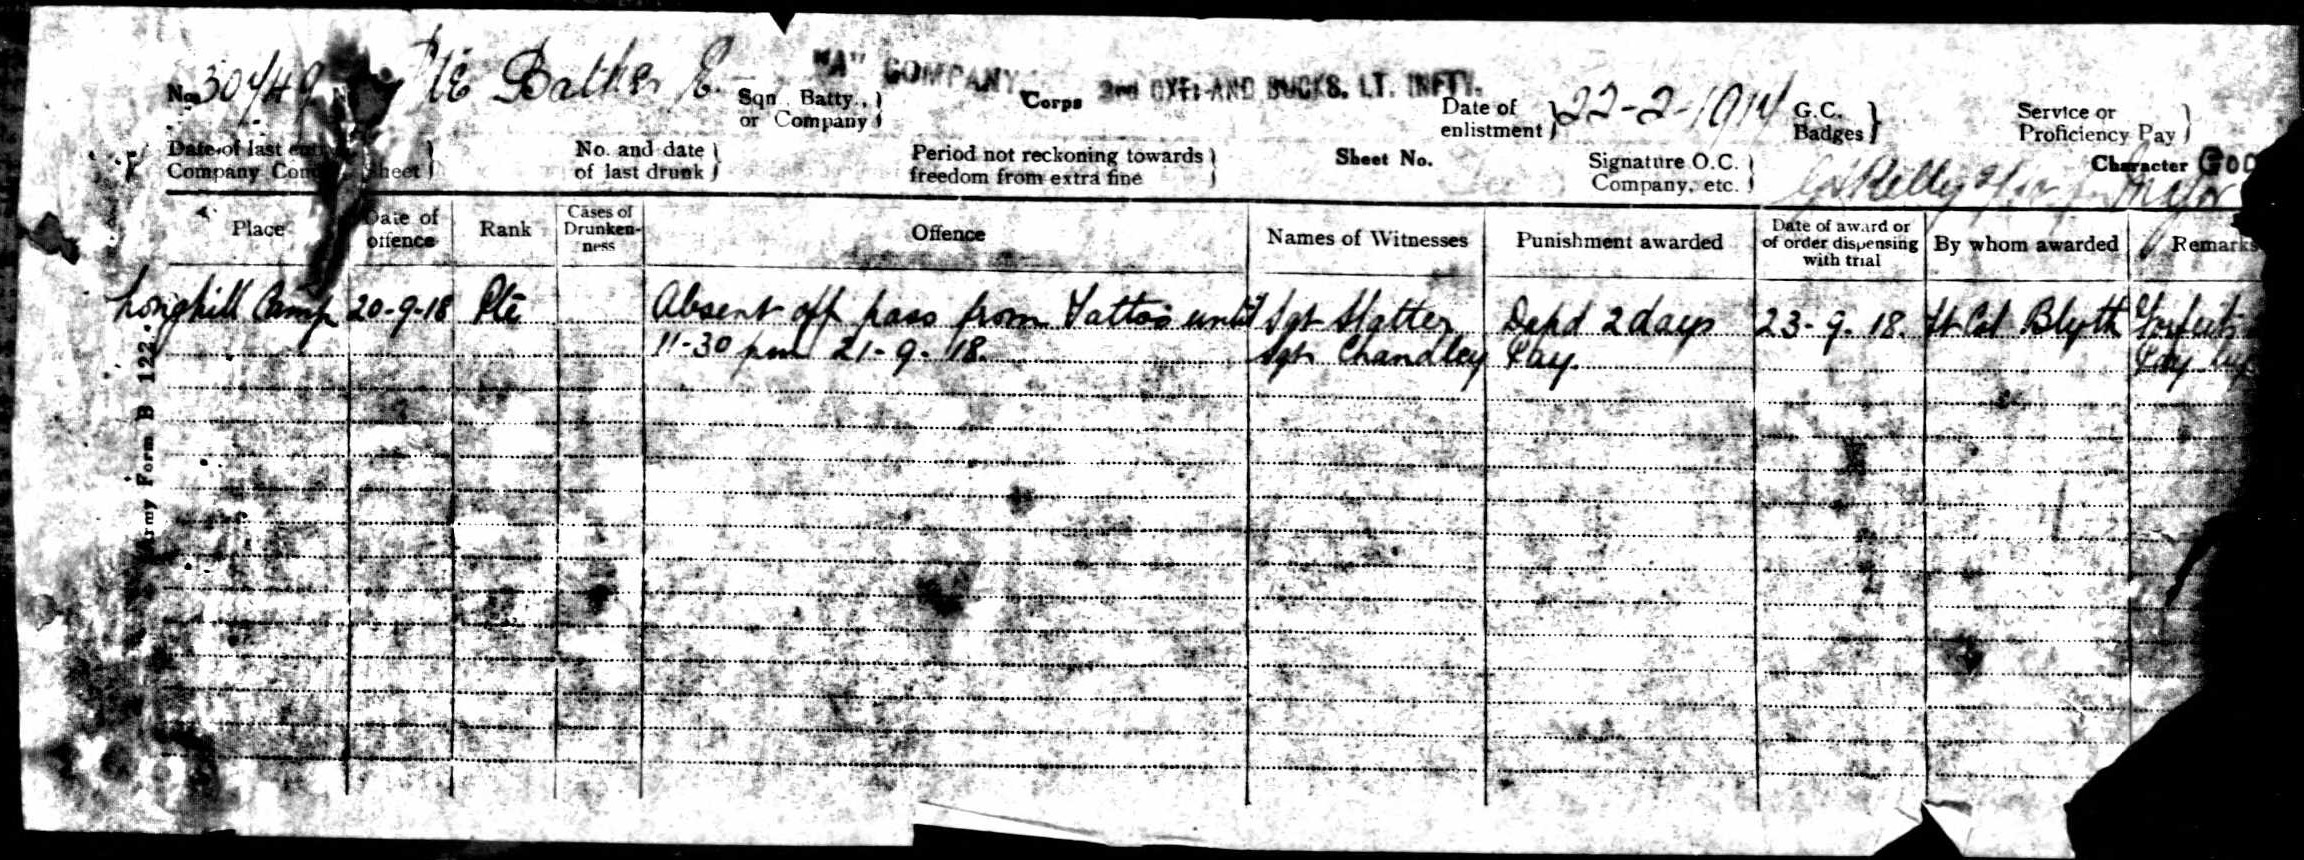 No. 30749 Pte Bather E. Sqn., Batty., or Company "A" COMPANY Corps 3rd OXF: AND BUCKS. LT. INFTY. Date of enlistment 22-2-1917 G.C. Badges Service or Proficiency Pay
Date of last entry Company Conduct Sheet No. and date of last drunk Period not reckoning towards freedom from extra fine Sheet No. Signature O.C. Company, etc. Major Character GOOD
Place Date of offence Rank Cases of Drunkenness Offence Names of Witnesses Punishment awarded Date of award or of order dispensing with trial By whom awarded Remarks
Longhill Camp 20-9-18 Pte Absent off pass from Tattoo until Sgt Slatter Depd 2 days 23-9-18. Lt Col Blyth Forfeits
11-30 pm 21-9-18. Sgt Chandley Pay. Pay
Army Form B 122.